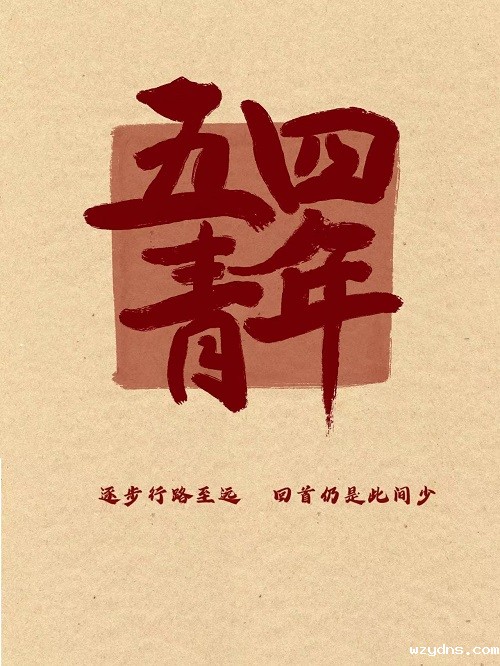 五四
青年
逐步行路至远 回首仍是此间少
wzydns.com